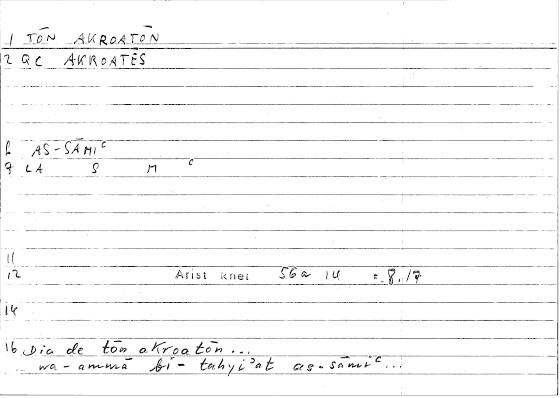 1 TŌN AKROATŌN
2 QC AKROATĒS
8 AS-SĀMIᶜ
9 LA S M ᶜ
11
12 Arist rhet 56a 14
14
16 Dia de tōn akroatōn...
wa-ammā bi-tahyiʾat as-sāmiᶜ...